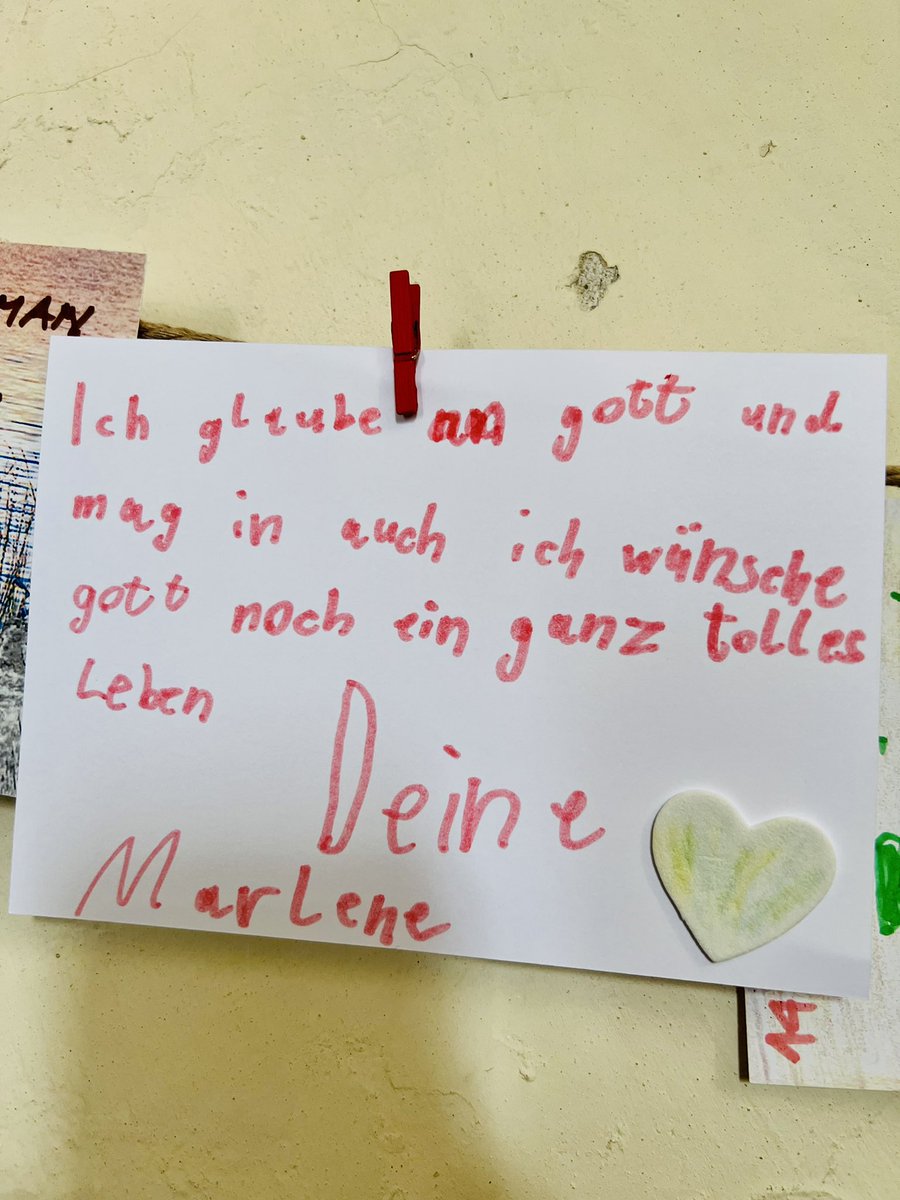 MAN
Ich glaube an gott und
mag in auch ich wünsche
gott noch ein ganz tolles
Leben
Deine
Marlene
14